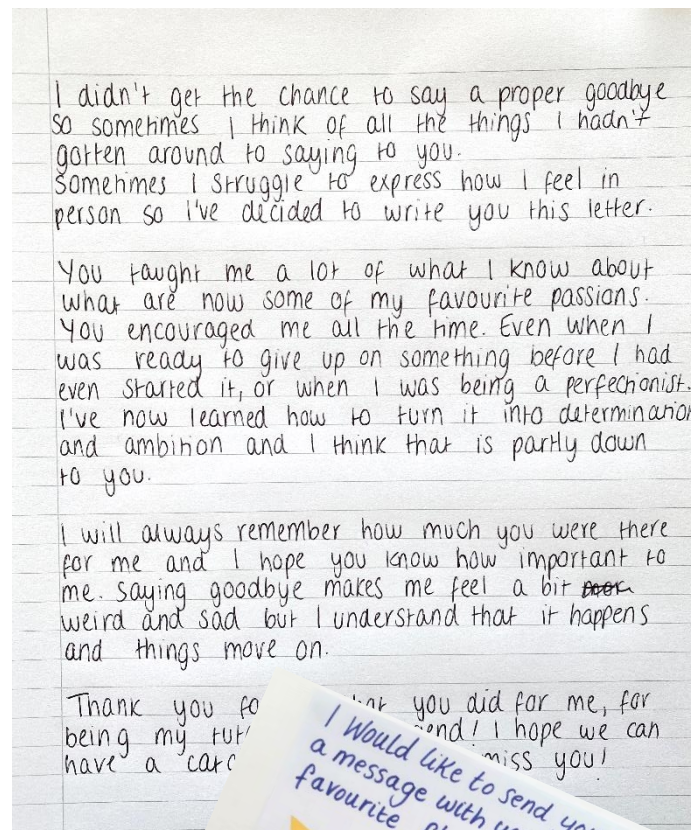 I didn't get the chance to say a proper goodbye
so sometimes I think of all the things I hadn't
gotten around to saying to you.
Sometimes I struggle to express how I feel in
person so i've decided to write you this letter.
You taught me a lot of what I know about
what are now some of my favourite passions.
You encouraged me all the time. Even when I
was ready to give up on something before I had
even started it, or when I was being a perfectionist.
I've now learned how to turn it into determination
and ambition and I think that is partly down
to you.
I will always remember how much you were there
for me and I hope you know how important to
me. Saying goodbye makes me feel a bit
weird and sad but I understand that it happens
and things move on.
Thank you you did for me, for
being my I hope we can
have a miss you!
I Would like to send you
a message with
favourite